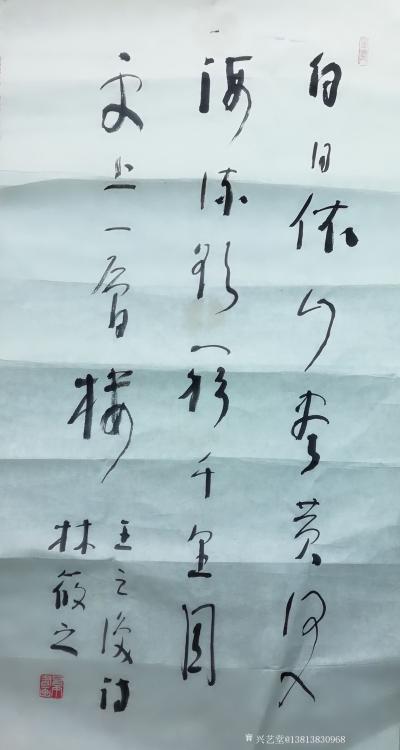 白日依山盡黄河入
海流欲窮千里目
更上一層樓
王之渙詩
林筱之
兴艺堂@13813830968